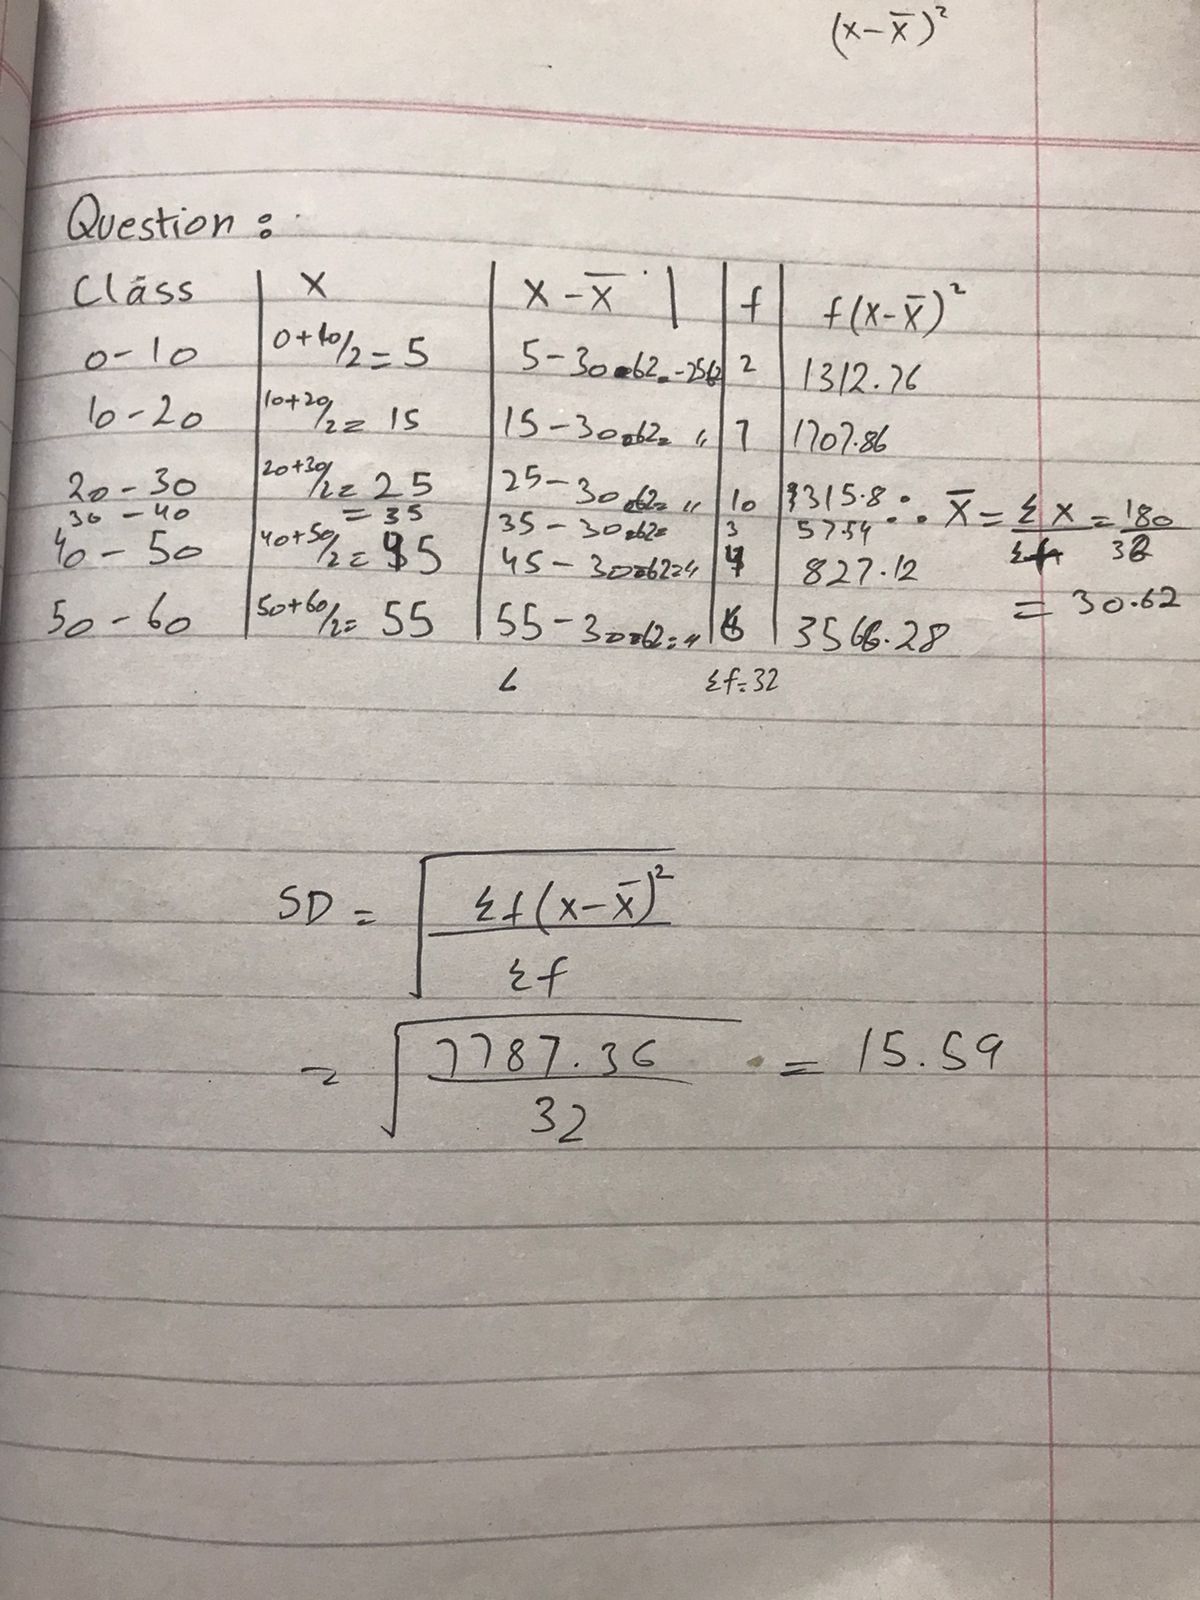 (x-x̄)²
Question :
Class | X | X - X̄ | f | f(X-X̄)²
0-10 0+10/2 = 5 5-30.62=-2562 2 1312.76
10-20 10+20/2= 15 15-30.62= " 7 1707.86
20-30 20+30/2= 25 25-30.62= " 10 315.8 ∴ X̄ = Σx = 180
30-40 = 35 35-30.62= 3 57.54 Σf 32
40-50 40+50/2= 45 45-30.62= " 4 827.12
= 30.62
50-60 50+60/2= 55 55-30.62= " 6 3566.28
Σf=32
SD = √ Σf(x-x̄)²
Σf
= √ 7787.36 = 15.59
32